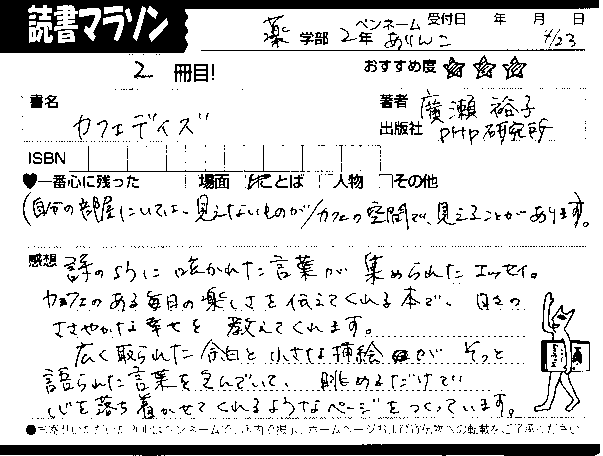 読書マラソン
薬 学部 2年 ペンネーム ありんこ 受付日 年 月 日 4/23
2 冊目! おすすめ度 ☆☆☆
書名 カフェデイズ
著者 廣瀬 裕子
出版社 PHP研究所
ISBN
♥一番心に残った 場面 ことば 人物 その他
(自分の部屋にいては、見えないものが/カフェの空間で、見えることがあります。
感想 詩のように呟かれた言葉が集められたエッセイ。
カフェのある毎日の楽しさを伝えてくれる本で、日々の
ささやかな幸せを教えてくれます。
広く取られた余白と小さな挿絵が そっと
語られた言葉を包んでいて、眺めるだけで
心を落ち着かせてくれるようなページをつくっています。
ペンネームで、店内で掲示、ホームページおよび
の転載をご了承ください